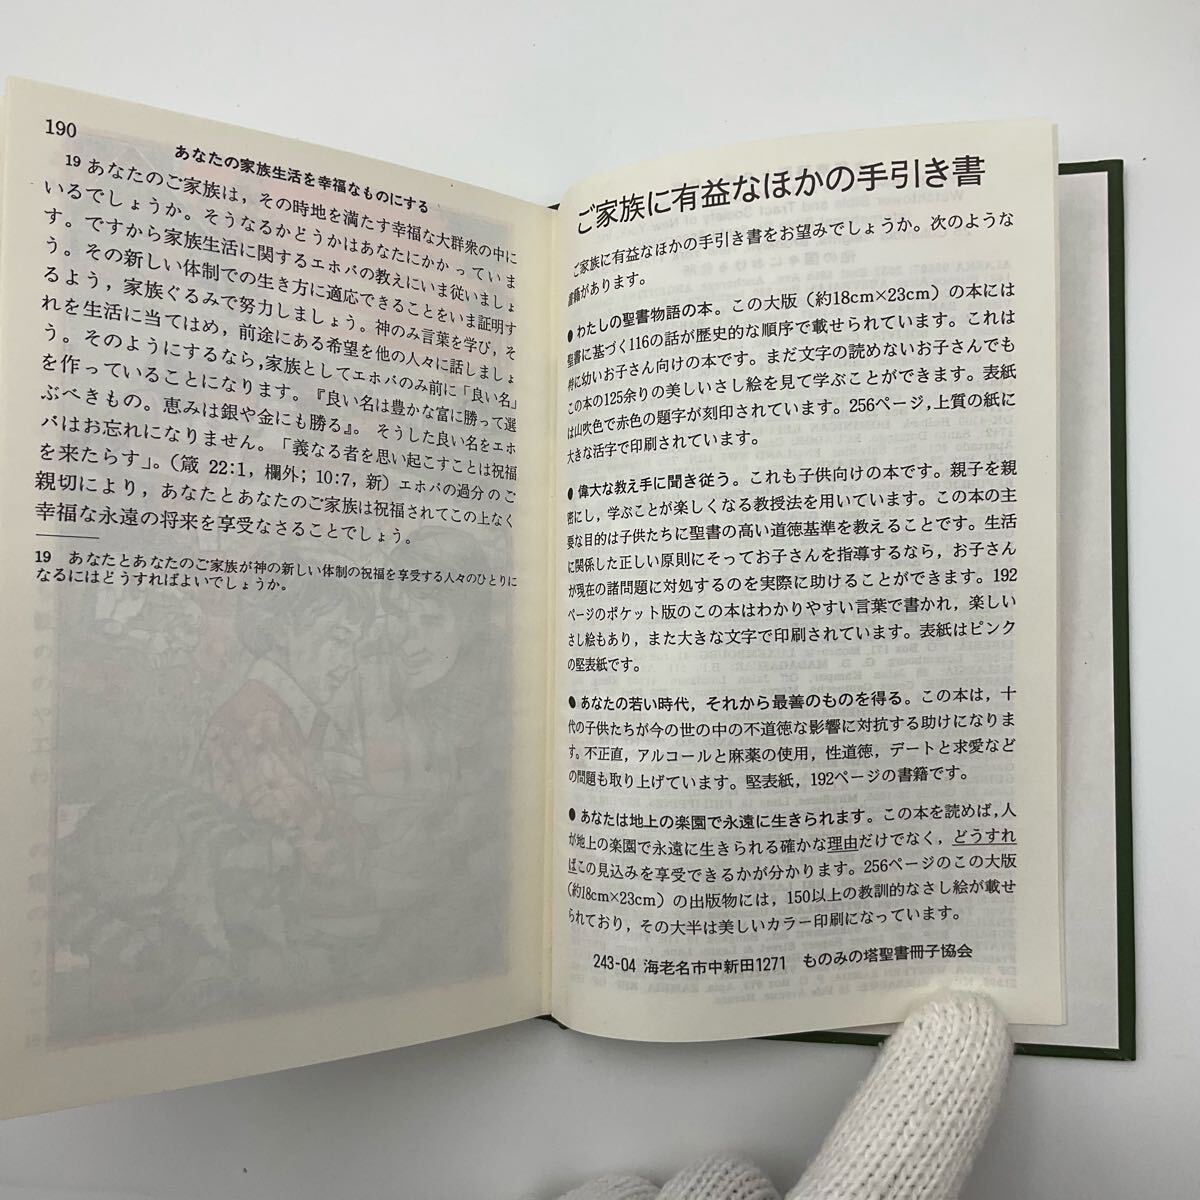 190
あなたの家族生活を幸福なものにする
19 あなたのご家族は，その時地を満たす幸福な大群衆の中に
いるでしょうか。そうなるかどうかはあなたにかかっていま
す。ですから家族生活に関するエホバの教えにいま従いましょ
う。その新しい体制での生き方に適応できることをいま証明す
るよう，家族ぐるみで努力しましょう。神のみ言葉を学び，そ
れを生活に当てはめ，前途にある希望を他の人々に話しましょ
う。そのようにするなら，家族としてエホバのみ前に「良い名」
を作っていることになります。『良い名は豊かな富に勝って選
ぶべきもの。恵みは銀や金にも勝る』。そうした良い名をエホ
バはお忘れになりません。「義なる者を思い起こすことは祝福
を来たらす」。（箴 22:1，欄外; 10:7，新）エホバの過分のご
親切により，あなたとあなたのご家族は祝福されてこの上なく
幸福な永遠の将来を享受なさることでしょう。
19 あなたとあなたのご家族が神の新しい体制の祝福を享受する人々のひとりに
なるにはどうすればよいでしょうか。
ご家族に有益なほかの手引き書
ご家族に有益なほかの手引き書をお望みでしょうか。次のような
書籍があります。
● わたしの聖書物語の本。この大版（約18cm×23cm）の本には
聖書に基づく116の話が歴史的な順序で載せられています。これは
特に幼いお子さん向けの本です。まだ文字の読めないお子さんでも
この本の125余りの美しいさし絵を見て学ぶことができます。表紙
は山吹色で赤色の題字が刻印されています。256ページ，上質の紙に
大きな活字で印刷されています。
● 偉大な教え手に聞き従う。これも子供向けの本です。親子を親
密にし，学ぶことが楽しくなる教授法を用いています。この本の主
要な目的は子供たちに聖書の高い道徳基準を教えることです。生活
に関係した正しい原則にそってお子さんを指導するなら，お子さん
が現在の諸問題に対処するのを実際に助けることができます。192
ページのポケット版のこの本はわかりやすい言葉で書かれ，楽しい
さし絵もあり，また大きな文字で印刷されています。表紙はピンク
の堅表紙です。
● あなたの若い時代，それから最善のものを得る。この本は，十
代の子供たちが今の世の中の不道徳な影響に対抗する助けになりま
す。不正直，アルコールと麻薬の使用，性道徳，デートと求愛など
の問題も取り上げています。堅表紙，192ページの書籍です。
● あなたは地上の楽園で永遠に生きられます。この本を読めば，人
が地上の楽園で永遠に生きられる確かな理由だけでなく，どうすれ
ばこの見込みを享受できるかが分かります。256ページのこの大版
（約18cm×23cm）の出版物には，150以上の教訓的なさし絵が載せ
られており，その大半は美しいカラー印刷になっています。
243-04 海老名市中新田1271 ものみの塔聖書冊子協会